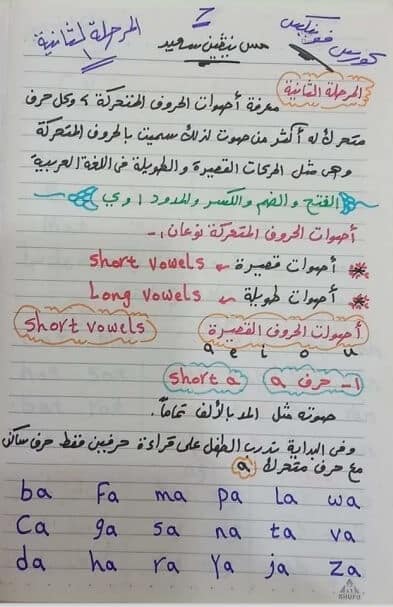 كورس فونيكس
ح
المرحلة الثانية
مس نيفين سعيد
١
المرحلة الثانية
معرفة أصوات الحروف المتحركة، وكل حرف
متحرك له أكثر من صوت لذلك سميت بالحروف المتحركة
وهي مثل الحركات القصيرة والطويلة في اللغة العربية
الفتح والضم والكسر والمدود ا و ي
أصوات الحروف المتحركة نوعان :-
أصوات قصيرة Short vowels
أصوات طويلة Long vowels
أصوات الحروف القصيرة Short vowels
a e i o u
١- حرف a short a
صوته مثل المد بالألف تماماً.
وفي البداية يتدرب الطفل على قراءة حرفين فقط حرف ساكن
مع حرف متحرك a
ba Fa ma pa La wa
Ca ga sa na ta va
da ha ra Ya ja Za